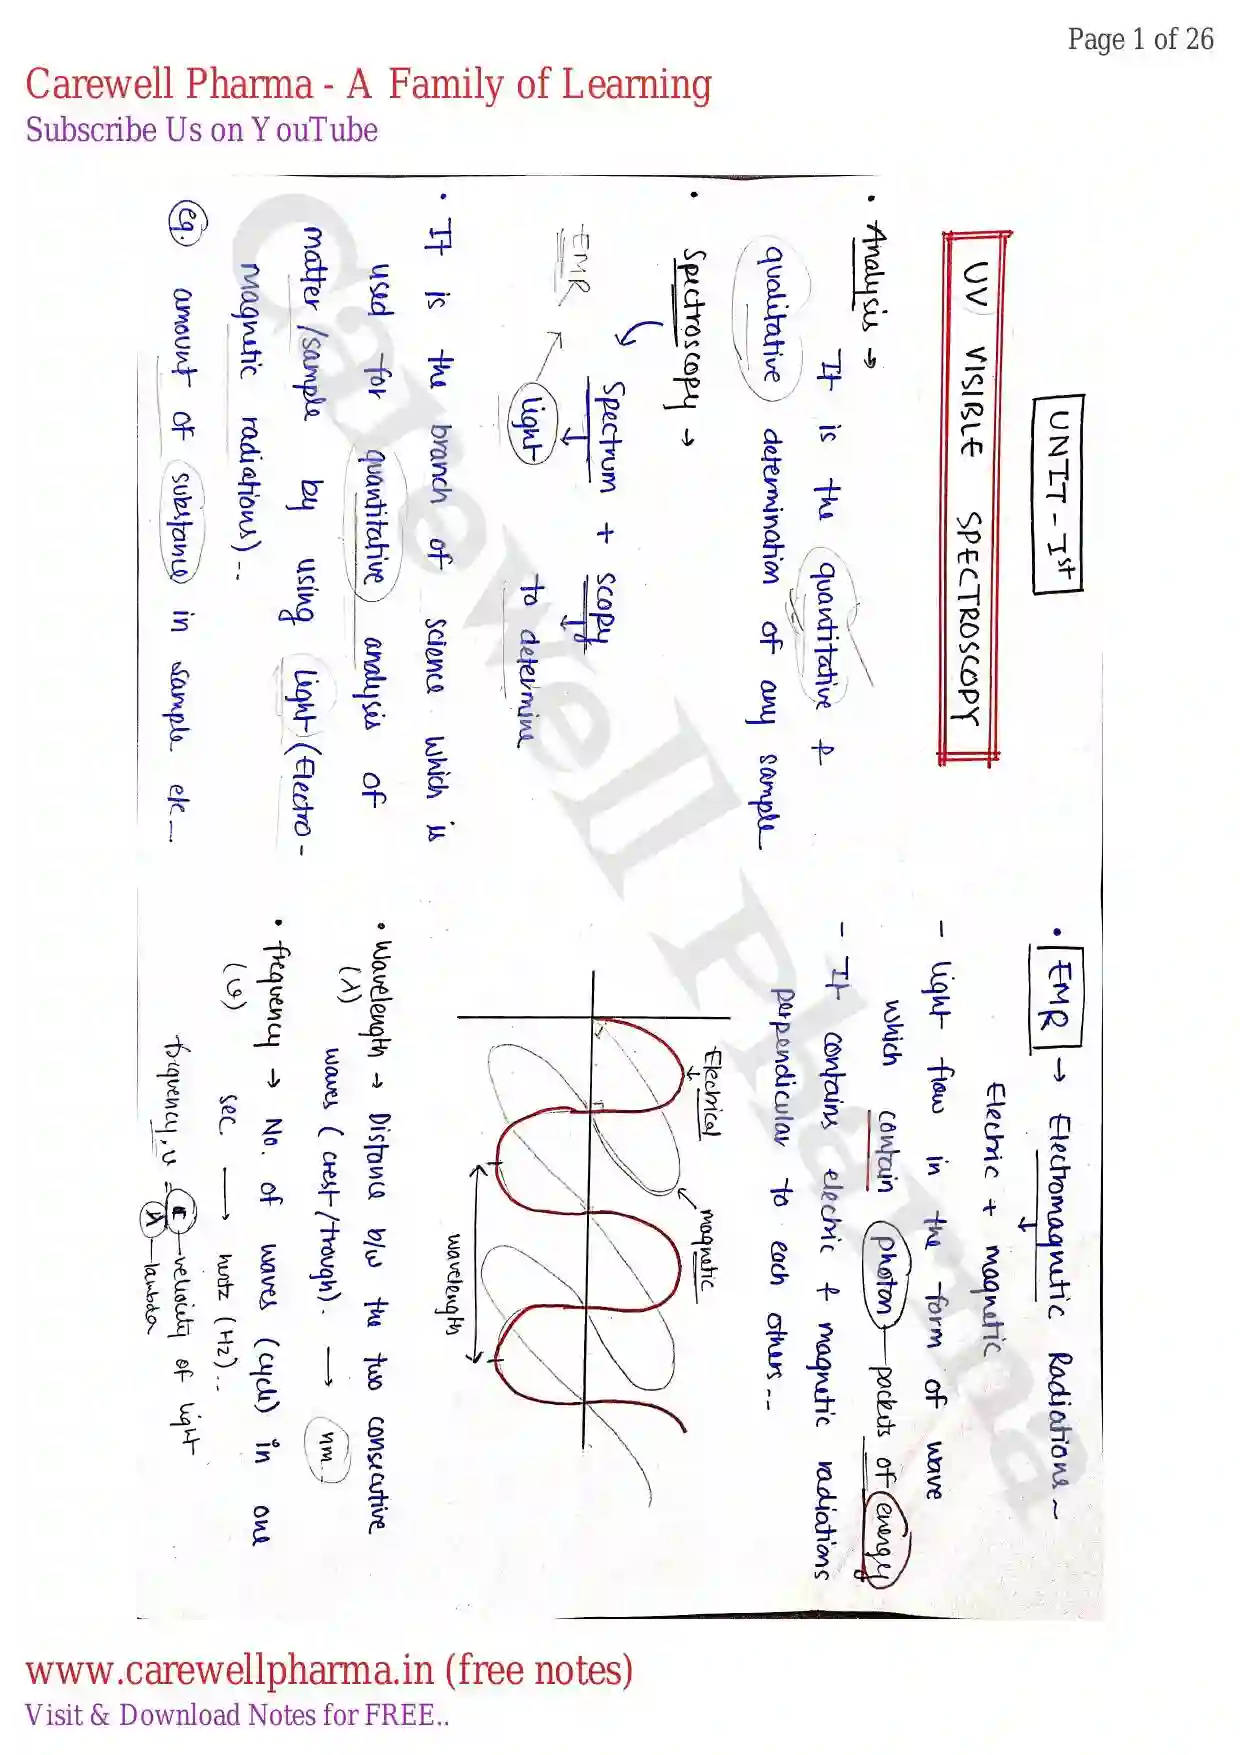 Page 1 of 26
Carewell Pharma - A Family of Learning
Subscribe Us on YouTube
UNIT - Ist
UV VISIBLE SPECTROSCOPY
• Analysis →
It is the quantitative &
qualitative determination of any sample
• Spectroscopy →
Spectrum + scopy
EMR light to determine
• It is the branch of science which is
used for quantitative analysis of
matter/sample by using light (Electro-
magnetic radiations)..
eg. amount of substance in sample etc—
• EMR → Electromagnetic Radiations ~
Electric + magnetic
- light flow in the form of wave
which contain photon — packets of energy
- It contains electric & magnetic radiations
perpendicular to each others...
Electrical
magnetic
wavelength
• Wavelength → Distance b/w the two consecutive
(λ) waves (crest/trough). → nm..
• frequency → No. of waves (cycle) in one
(υ) sec. → hertz (Hz)..
frequency, υ = c — velocity of light
λ — lambda
Carewell Pharma
www.carewellpharma.in (free notes)
Visit & Download Notes for FREE..